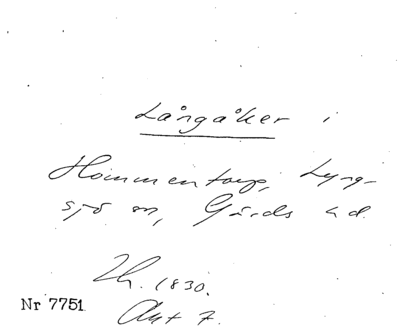 Långåker i
Hommentorp, Lyng-
sjö sn, Gärds hd.
Lh. 1830.
Akt 7.
Nr 7751